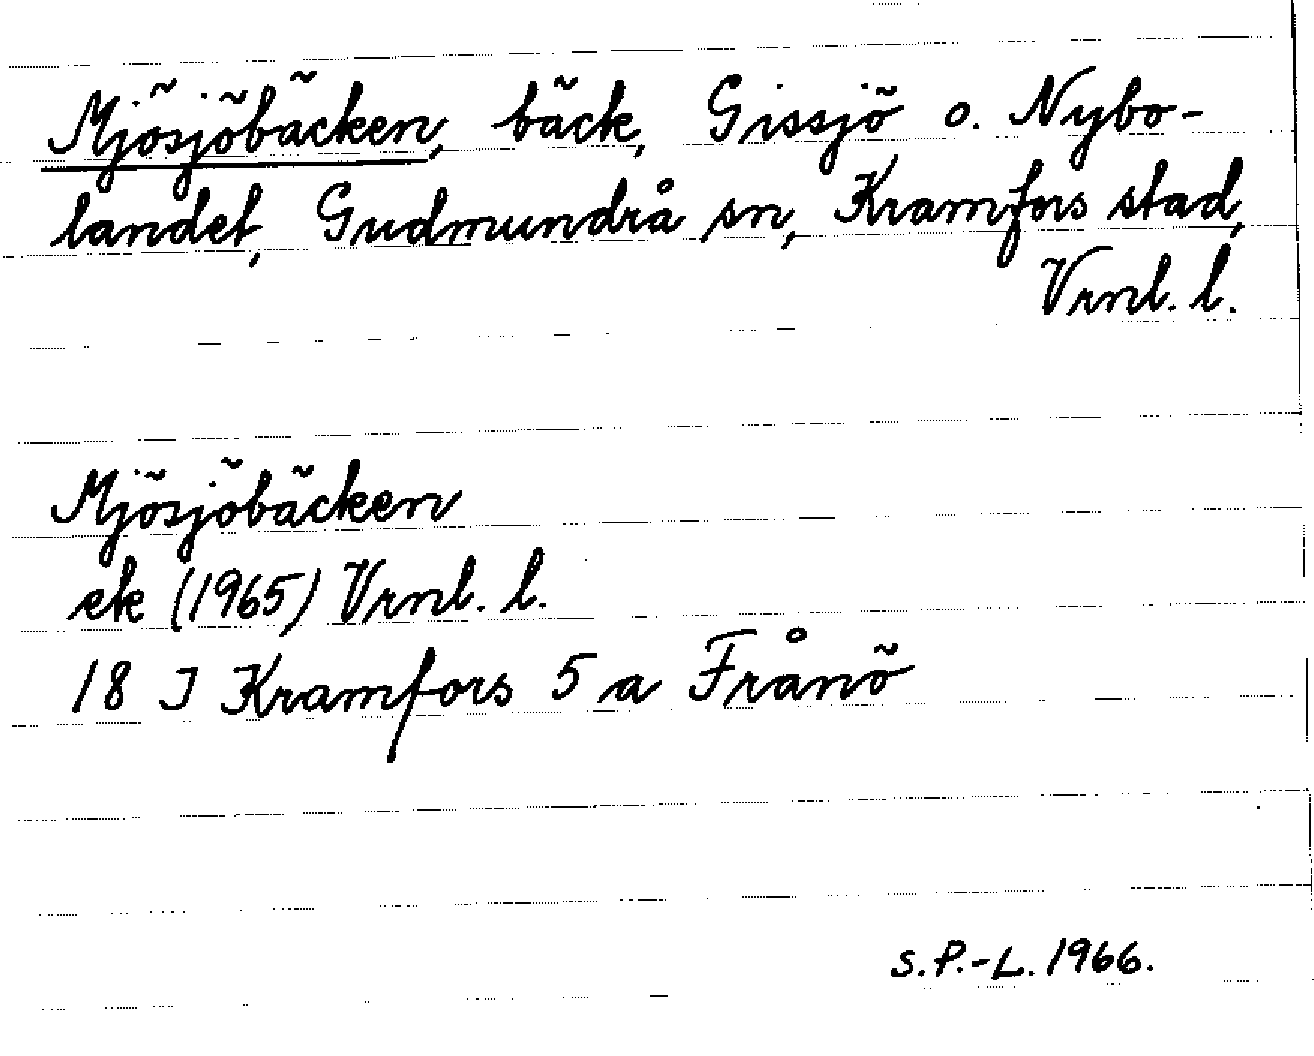 Mjösjöbäcken, bäck, Gissjö o. Nybo-
landet, Gudmundrå sn, Kramfors stad,
Vrnl. l.
Mjösjöbäcken
ek (1965) Vrnl. l.
18 J Kramfors 5 a Frånö
S.P.-L. 1966.